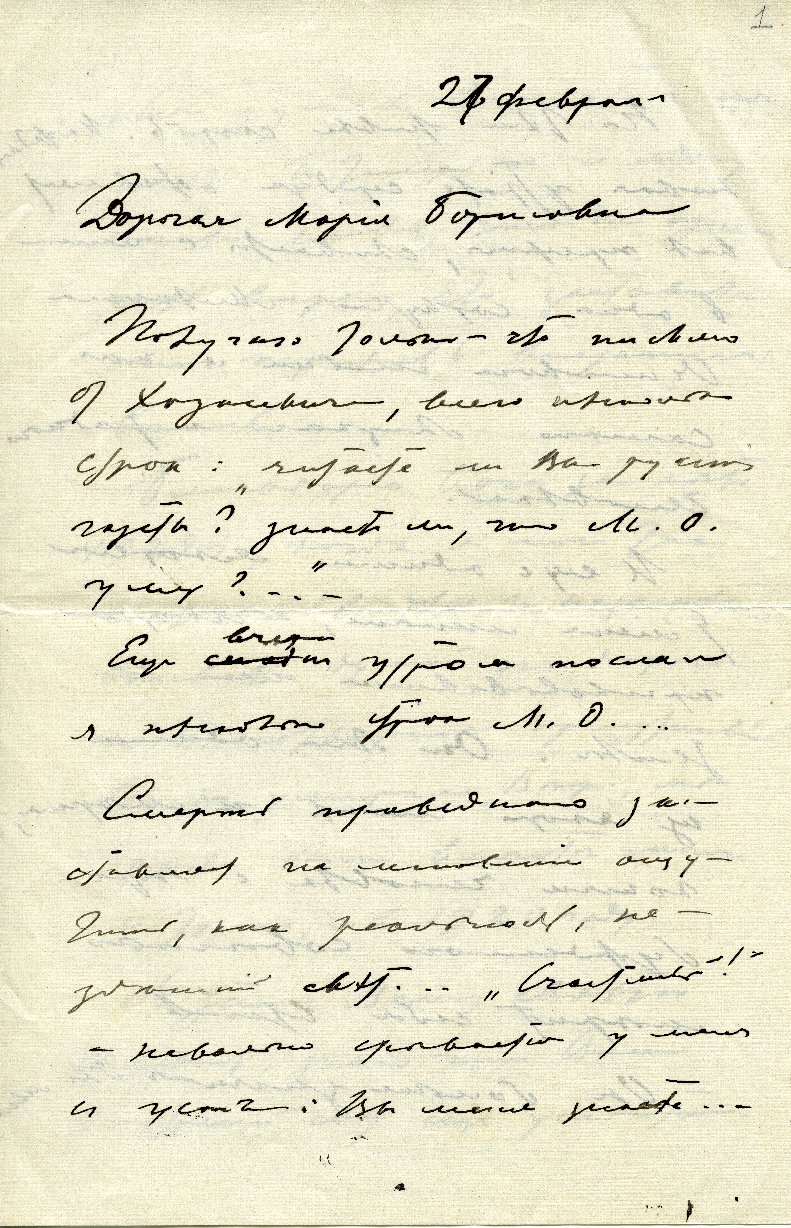 1
27 февраля
Дорогая Марія Борисовна
Получаю только-что письмо
от Ходасевича, всего нѣсколько
строк: „читаете ли Вы русскія
газеты? знаете ли, что М. О.
умер?..."
Еще вчера утром послал
я нѣсколько строк М. О. ...
Смерть праведнаго за-
ставляет на мгновеніе ощу-
тить, как реальность, не-
здѣшній свѣт... „Счастливый!"
– невольно срывается у меня
с уст: Вы меня знаете...